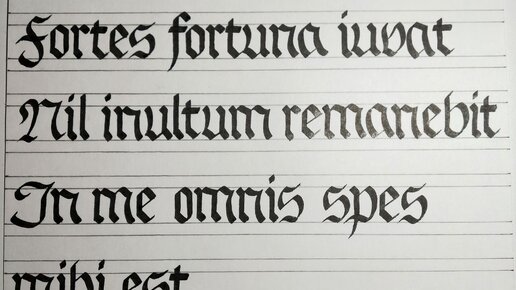 Fortes fortuna iuvat
Nil inultum remanebit
In me omnis spes
mihi est